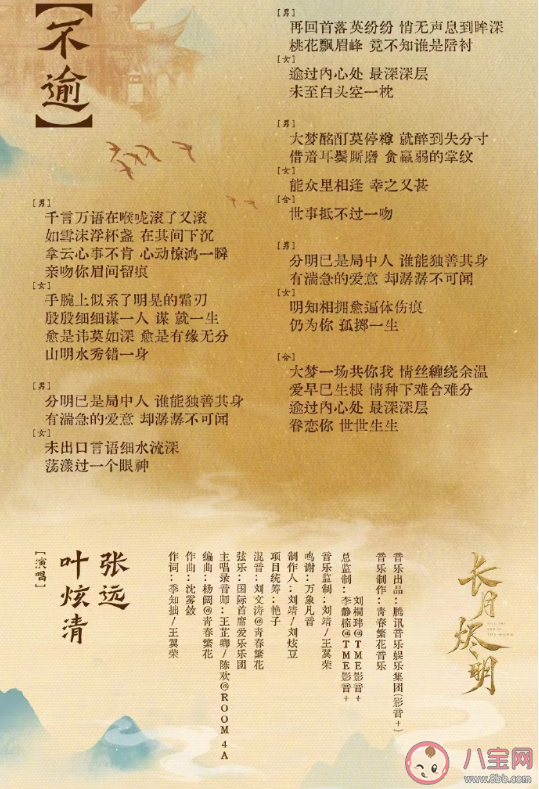 【不逾】
[男]
千言万语在喉咙滚了又滚
如雪沫浮杯盏 在其间下沉
拿云心事不肯 心动惊鸿一瞬
亲吻你眉间留痕
[女]
手腕上似系了明晃的霜刃
殷殷细细谋一人 谋 就一生
愈是讳莫如深 愈是有缘无分
山明水秀错一身
[男]
分明已是局中人 谁能独善其身
有湍急的爱意 却潺潺不可闻
[女]
未出口言语细水流深
荡漾过一个眼神
[男]
再回首落英纷纷 悄无声息到眸深
桃花飘眉峰 竟不知谁是陪衬
[女]
逾过内心处 最深深层
未至白头空一枕
[男]
大梦酩酊莫停樽 就醉到失分寸
借着耳鬓厮磨 贪赢弱的掌纹
[女]
能众里相逢 幸之又甚
[合]
世事抵不过一吻
[男]
分明已是局中人 谁能独善其身
有湍急的爱意 却潺潺不可闻
[女]
明知相拥愈遍体伤痕
仍为你 孤掷一生
[合]
大梦一场共你我 情丝缠绕余温
爱早已生根 情种下难舍难分
逾过内心处 最深深层
眷恋你 世世生生
长月烬明
音乐出品：腾讯音乐娱乐集团(影音+)
音乐制作：青春繁花音乐
刘桐玮@TME影音+
总监制：李静楠@TME影音+
音乐监制：刘靖/王翼荣
鸣谢：万象凡音
制作人：刘靖/刘炫豆
项目统筹：艳子
混音：刘文涛@青春繁花
弦乐：国际首席爱乐乐团
主唱录音师：王芷卿/陈欢@ROOM 4A
编曲：杨阔@青春繁花
作曲：沈雾敛
作词：李知拙/王翼荣
张远
叶炫清
[演唱]
八宝网
www.8bb.com